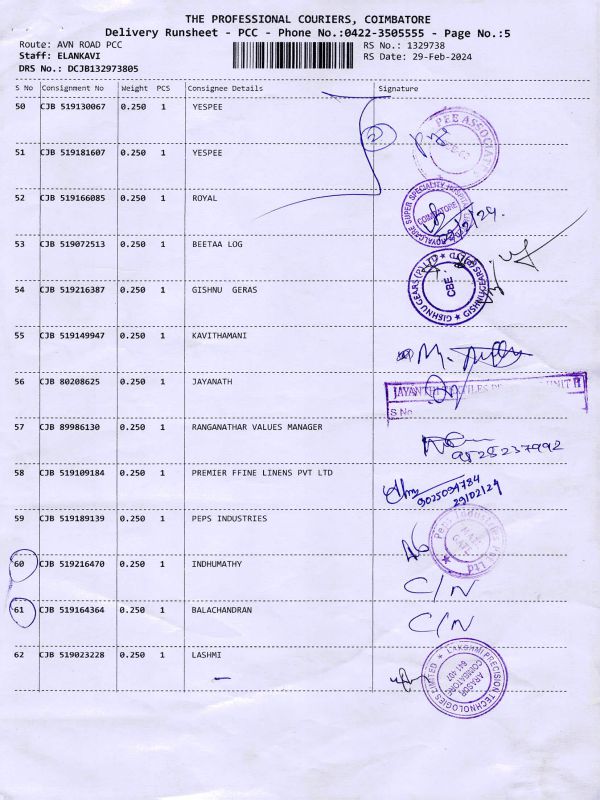 THE PROFESSIONAL COURIERS, COIMBATORE
Delivery Runsheet - PCC - Phone No.:0422-3505555 - Page No.:5
Route: AVN ROAD PCC RS No.: 1329738
Staff: ELANKAVI RS Date: 29-Feb-2024
DRS No.: DCJB132973805
S No Consignment No Weight PCS Consignee Details Signature
50 CJB 519130067 0.250 1 YESPEE
2
51 CJB 519181607 0.250 1 YESPEE
52 CJB 519166085 0.250 1 ROYAL
COIMBATORE
53 CJB 519072513 0.250 1 BEETAA LOG
54 CJB 519216387 0.250 1 GISHNU GERAS
GISHNU GEARS (P) LTD
CBE
55 CJB 519149947 0.250 1 KAVITHAMANI
56 CJB 80208625 0.250 1 JAYANATH
UNIT II
S No
57 CJB 89986130 0.250 1 RANGANATHAR VALUES MANAGER
58 CJB 519109184 0.250 1 PREMIER FFINE LINENS PVT LTD
9025094784
29/02/24
59 CJB 519189139 0.250 1 PEPS INDUSTRIES
60 CJB 519216470 0.250 1 INDHUMATHY
C/N
61 CJB 519164364 0.250 1 BALACHANDRAN
C/N
62 CJB 519023228 0.250 1 LASHMI
LAKSHMI PRECISION TECHNOLOGIES LIMITED
ARASUR
COIMBATORE
641 407